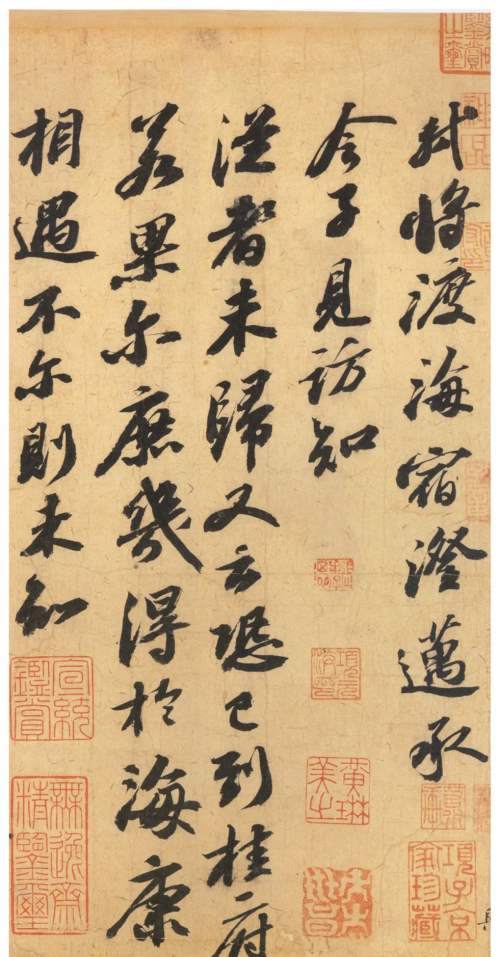 軾將渡海宿澄邁承
令子見訪知
從者未歸又云恐已到桂府
若果尔庶幾得於海康
相遇不尔則未知
項子京家珍藏
黃琳美之
宣統鑑賞
無逸齋精鑒璽